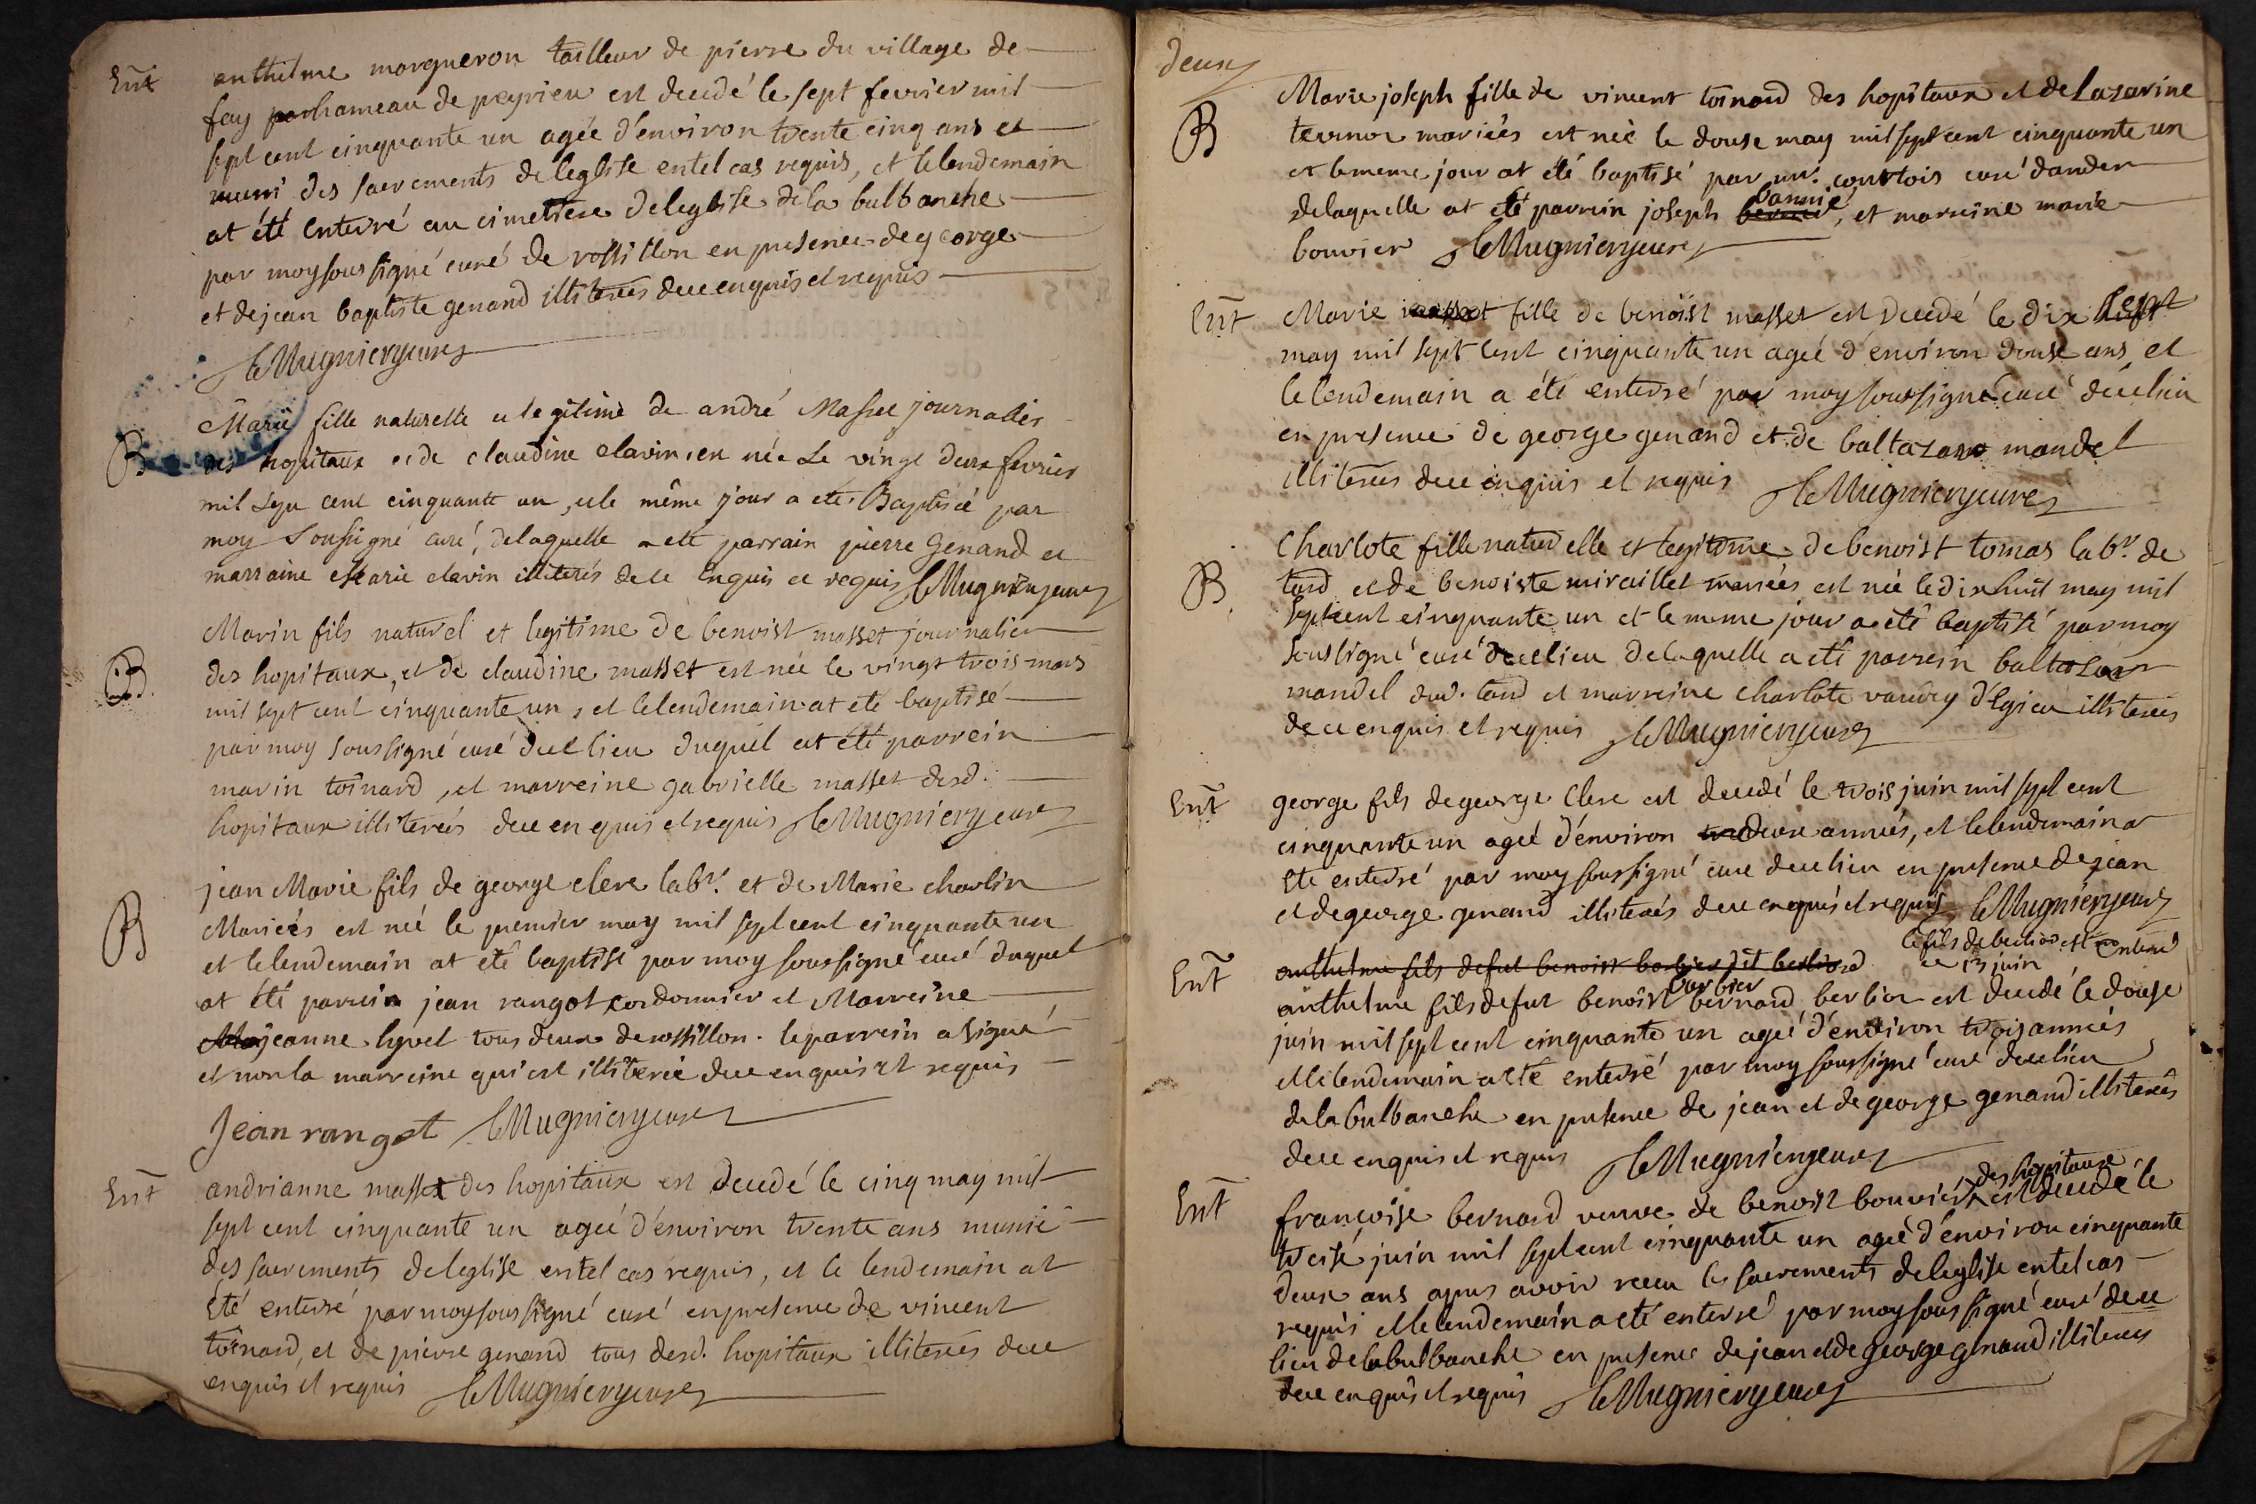 Ent
anthelme morgueron tailleur de pierre du village de
fay parhameau de peyrieu est decedé le sept fevrier mil
sept cent cinquante un agée d'environ trente cinq ans et
muni des sacrements deleglise entel cas requis, et lelendemain
at été enterré au cimetiere deleglise dela bulbanche
par moy soussigné curé de rossillon en presence de george
et dejean baptiste genand illiterés dece enquis et requis
Mugnier curé
B
Marie fille naturelle et legitime de andré Masset journalier
des hopitaux et de claudine clavin, en née Le vingt deux fevrier
mil sept cent cinquante un, et le même jour a eté Baptisée par
moy Soussigné curé, delaquelle a eté parrain pierre Genand et
marraine Marie clavin illiterés de ce Enquis et requis Mugnier curé
B
Marin fils naturel et legitime de benoist masset journalier
des hopitaux, et de claudine masset est née le vingt trois mars
mil sept cent cinquante un, et lelendemain at eté baptisé
par moy soussigné curé duce lieu duquel at été parrein
marin toinard, et marreine gabrielle masset desd.
hopitaux illiterés dece enquis et requis Mugnier curé
B
jean Marie fils de george clerc labr. et de Marie charlin
Mariés est né le premier may mil sept cent cinquante un
et lelendemain at eté baptisé par moy soussigné curé duquel
at été parrein jean rangot cordonnier et Marreine
jeanne hyvel tous deux de rossillon. leparrein a signé
et non la marreine qui est illiterée dece enquis et requis
Jean rangot Mugnier curé
Ent
andrianne masset des hopitaux est decedé le cinq may mil
sept cent cinquante un ageé d'environ trente ans munie
des sacrements deleglise entel cas requis, et le lendemain at
eté enterré parmoy soussigné curé enpresence de vincent
toinard, et de pierre genand tous desd. hopitaux illiterés dece
enquis et requis Mugnier curé
deux
B
Marie joseph fille de vincent toinard des hopitaux et de Lazarine
ternor mariés est née le douse may mil sept cent cinquante un
et lememe jour at été baptisé par mr. courtois curé dander
delaquelle at eté parrein joseph , et marreine marie
bouvier Mugnier curé
Ent
Marie masset fille de benoist masset est decedé le dix sept
may mil sept cent cinquante un ageé d'environ douse ans, et
lelendemain a été enterré par moy soussigné curé decelieu
enpresence de george genand et de baltazard mandel
illiterés dece enquis et requis Mugnier curé
B
Charlote fille naturelle et legitime de benoist tomas labr. de
tard et de benoiste miraillet mariés est née le dixhuit may mil
septcent cinquante un et le meme jour a eté baptisé par moy
soussigné curé decelieu delaquelle a eté parrein baltazar
mandel dud. tard et marreine charlote vaudey d'Egieu illiterés
de ce enquis et requis Mugnier curé
Ent
george fils degeorge clerc est decedé le trois juin mil sept cent
cinquante un ageé d'environ deux anneés, et lelendemain a
ete enterré par moy soussigné curé decelieu en presence dejean
et degeorge genand illiterés dece enquis et requis Mugnier curé
le fils deberlior est enterré
ce 13 juin
Ent
anthelme fils defut benoist barbier dit berliord
barbier
anthelme fils defut benoist bernard berlior est decedé le douse
juin mil sept cent cinquante un ageé d'environ trois anneés
et lelendemain a eté enterré par moy soussigné curé decelieu
delabulbanche en presence de jean et de george genand illiterés
dece enquis et requis Mugnier curé
Ent
des hopitaux
françoise bernard veuve de benoist bouvier est decedé le
treisé juin mil sept cent cinquante un ageé d'environ cinquante
deux ans apres avoir receu les sacrements deleglise entel cas
requis et lelendemain a eté enterré par moy soussigné curé dece
lieu delabulbanche en presence dejean et de george genand illiterés
dece enquis et requis Mugnier curé